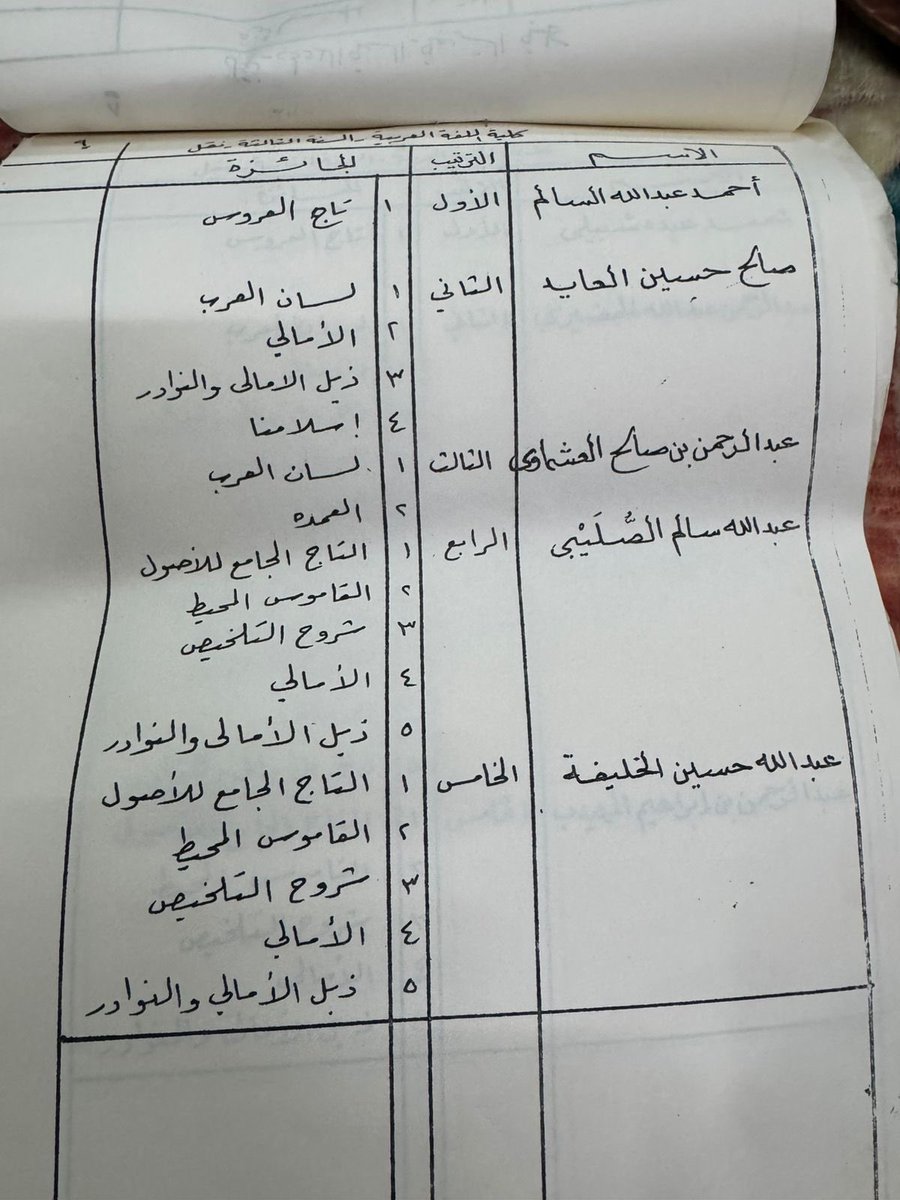 كلية اللغة العربية - السنة الثالثة - نقل ٦
الاسم الترتيب الجائزة
أحمد عبدالله السالم الأول ١ تاج العروس
صالح حسين العايد الثاني ١ لسان العرب
٢ الأمالي
٣ ذيل الامالى والنوادر
٤ إسلامنا
عبدالرحمن بن صالح العشماوى الثالث ١ لسان العرب
٢ العمده
عبدالله سالم الصُّلَيْبي الرابع ١ التاج الجامع للأصول
٢ القاموس المحيط
٣ شروح التلخيص
٤ الأمالي
٥ ذيل الأمالى والنوادر
عبدالله حسين الخليفة الخامس ١ التاج الجامع للأصول
٢ القاموس المحيط
٣ شروح التلخيص
٤ الأمالي
٥ ذيل الأمالي والنوادر